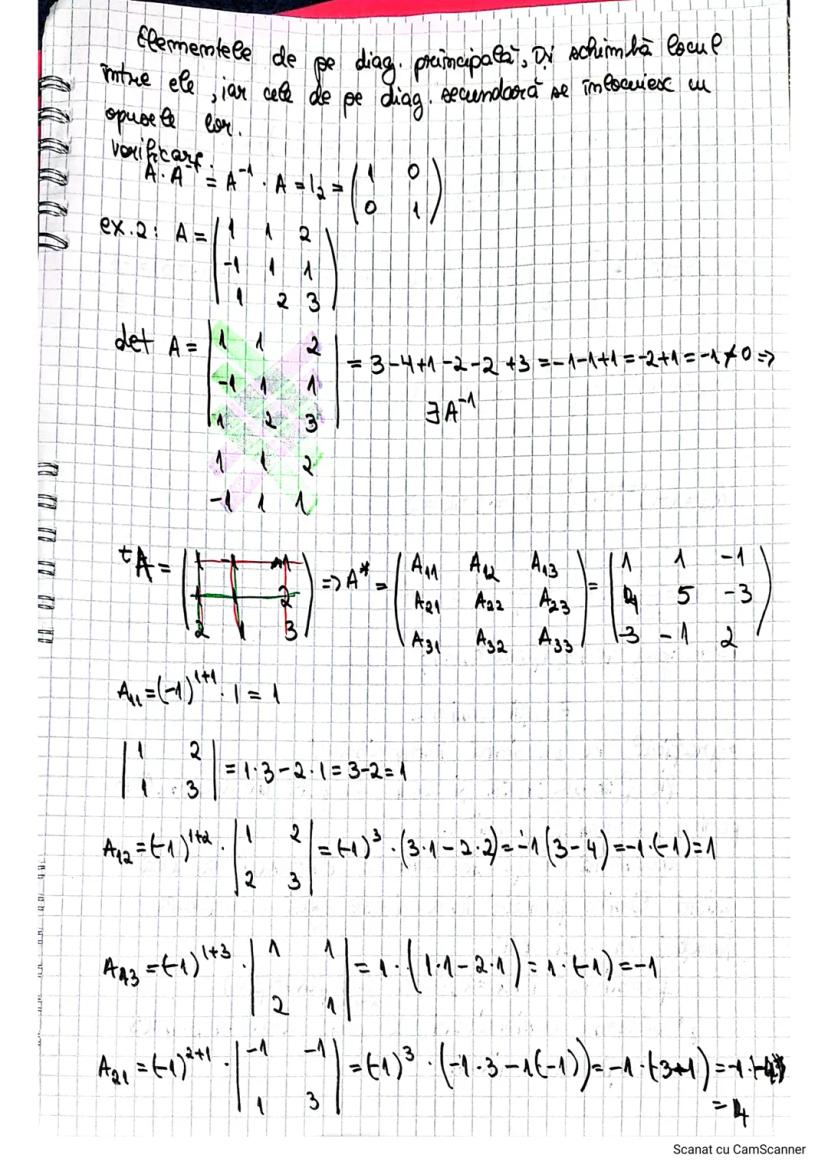 Elementele de pe diag. principală, își schimbă locul
între ele, iar cele de pe diag. secundară se înlocuiesc cu
opusele lor.
verificare:
A · A⁻¹ = A⁻¹ · A = I₂ = ( 1 0
0 1 )
ex.2: A = ( 1 1 2
-1 1 1
1 2 3 )
det A = | 1 1 2 | = 3-4+1-2-2+3 = -1-1+1 = -2+1 = -1 ≠ 0 =>
-1 1 1
∃A⁻¹
1 2 3
1 1 2
-1 1 1
ᵗA = ( 1 -1 1 ) => A* = ( A₁₁ A₁₂ A₁₃ ) = ( 1 1 -1 )
1 2 A₂₁ A₂₂ A₂₃ 4 5 -3
2 1 3 A₃₁ A₃₂ A₃₃ -3 -1 2
A₁₁ = (-1)¹⁺¹ · 1 = 1
| 1 2 | = 1·3-2·1 = 3-2 = 1
1 3
A₁₂ = (-1)¹⁺² · | 1 2 | = (-1)³ · (3·1-2·2) = -1(3-4) = -1·(-1) = 1
2 3
A₁₃ = (-1)¹⁺³ · | 1 1 | = 1 · (1·1-2·1) = 1·(-1) = -1
2 1
A₂₁ = (-1)²⁺¹ · | -1 -1 | = (-1)³ · (-1·3-1(-1)) = -1·(-3+1) = -1·
1 3
= 4
Scanat cu CamScanner